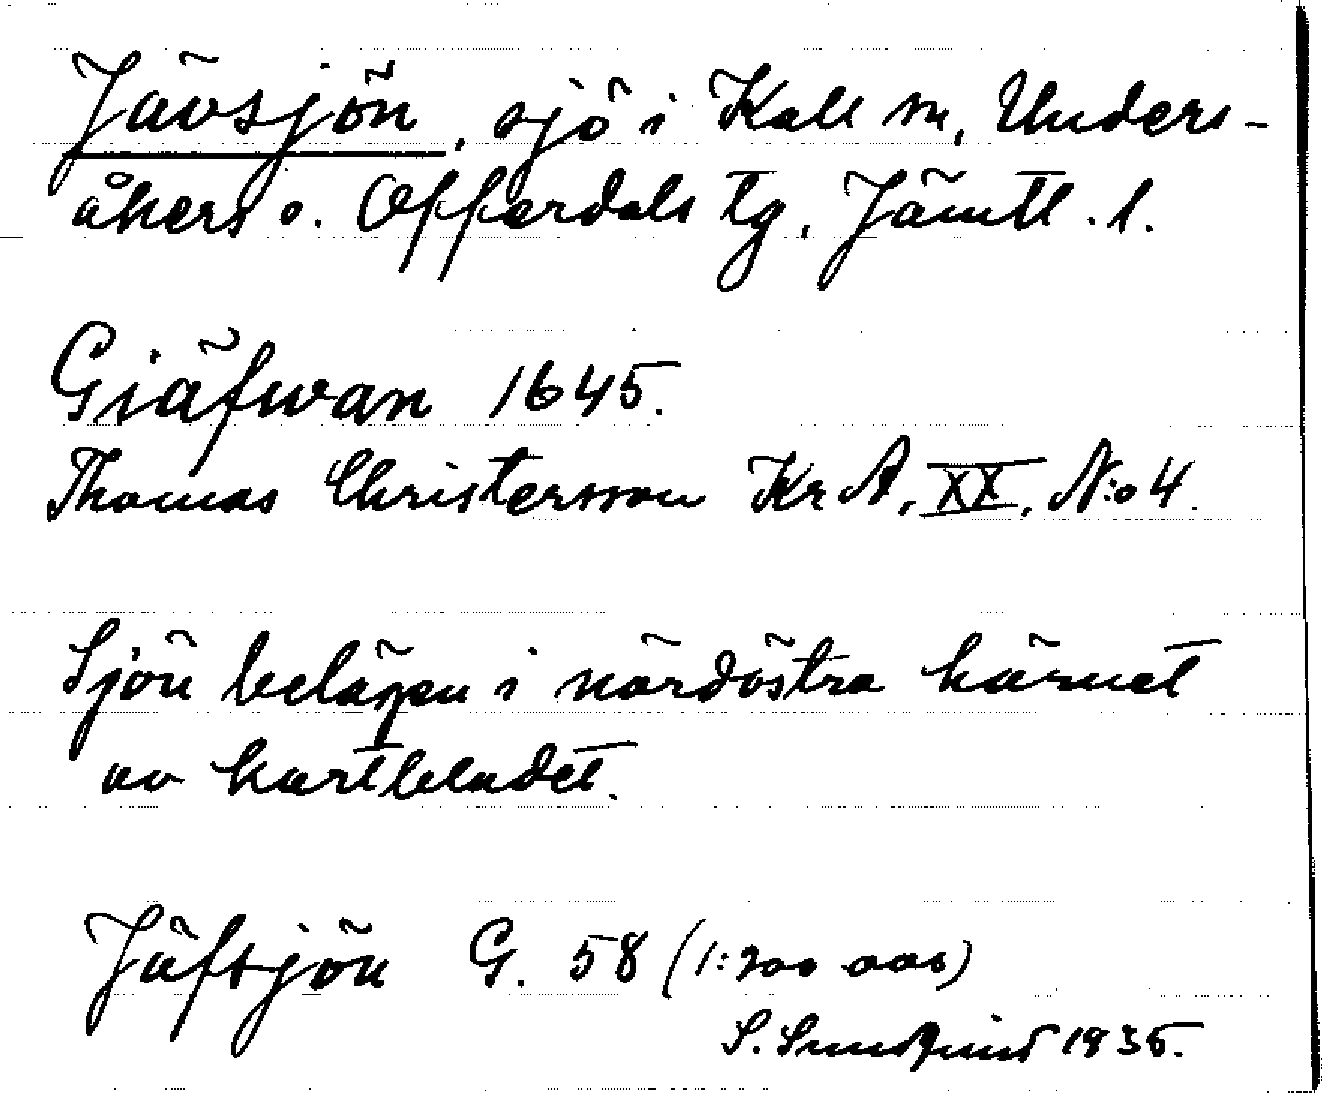 Jävsjön, sjö i Kall sn, Unders-
åkers o. Offerdals tg, Jämtl. l.
Giäfwan 1645.
Thomas Christersson Kr A, XX, N:o 4.
Sjön belägen i nordöstra hörnet
av kartbladet.
Jäfsjön G. 58 (1:200 000)
S. Sundqvist 1935.